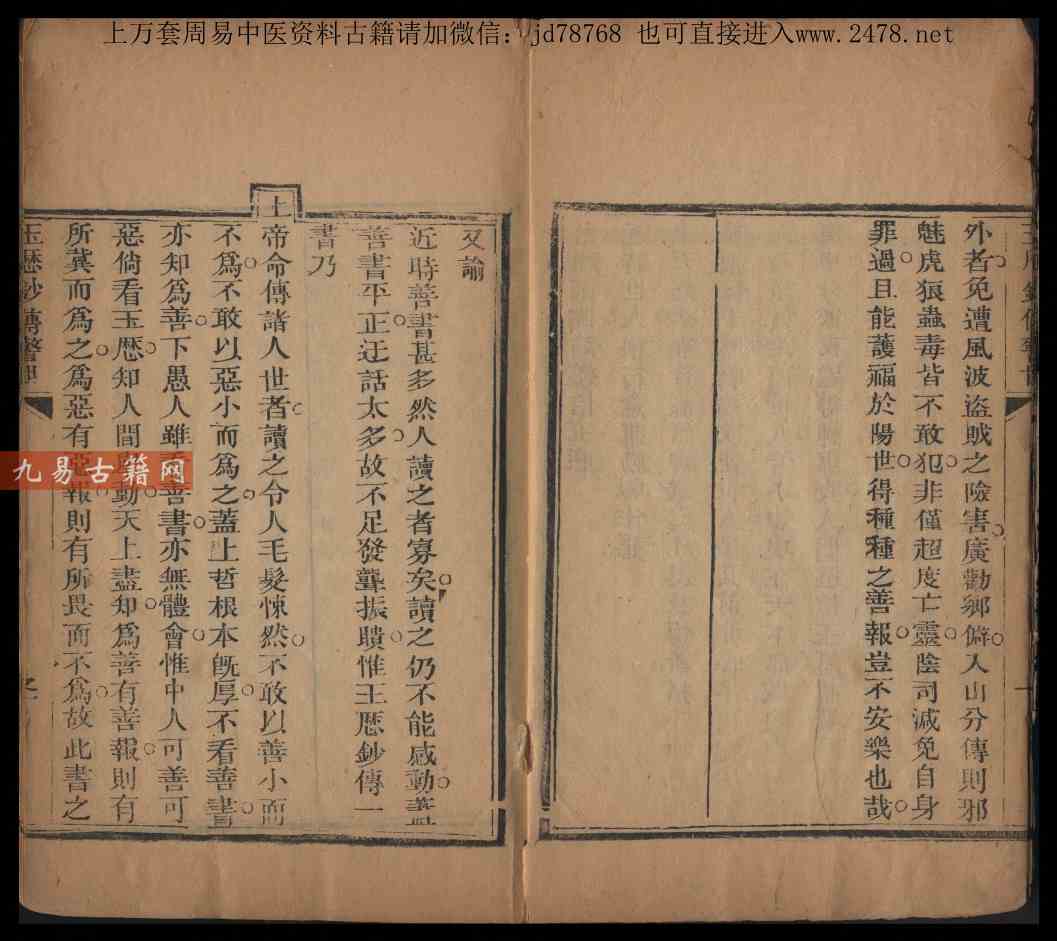 上万套周易中医资料古籍请加微信：jd78768 也可直接进入www.2478.net
外者免遭風波盜賊之險害廣勸鄉僻入山分傳則邪
魅虎狼蟲毒皆不敢犯非僅超度亡靈陰司減免自身
罪過且能護福於陽世得種種之善報豈不安樂也哉
又諭
近時善書甚多然人讀之者寡矣讀之仍不能感動蓋
善書平正迂話太多故不足發聾振聵惟玉厯鈔傳一
書乃
上
帝命傳諸人世者讀之令人毛髮悚然不敢以善小而
不爲不敢以惡小而爲之蓋上哲根本既厚不看善書
亦知爲善下愚人雖善書亦無體會惟中人可善可
惡倘看玉厯知人間動天上盡知爲善有善報則有
所冀而爲之爲惡有惡報則有所畏而不爲故此書之
玉厯鈔傳警世
九易古籍网